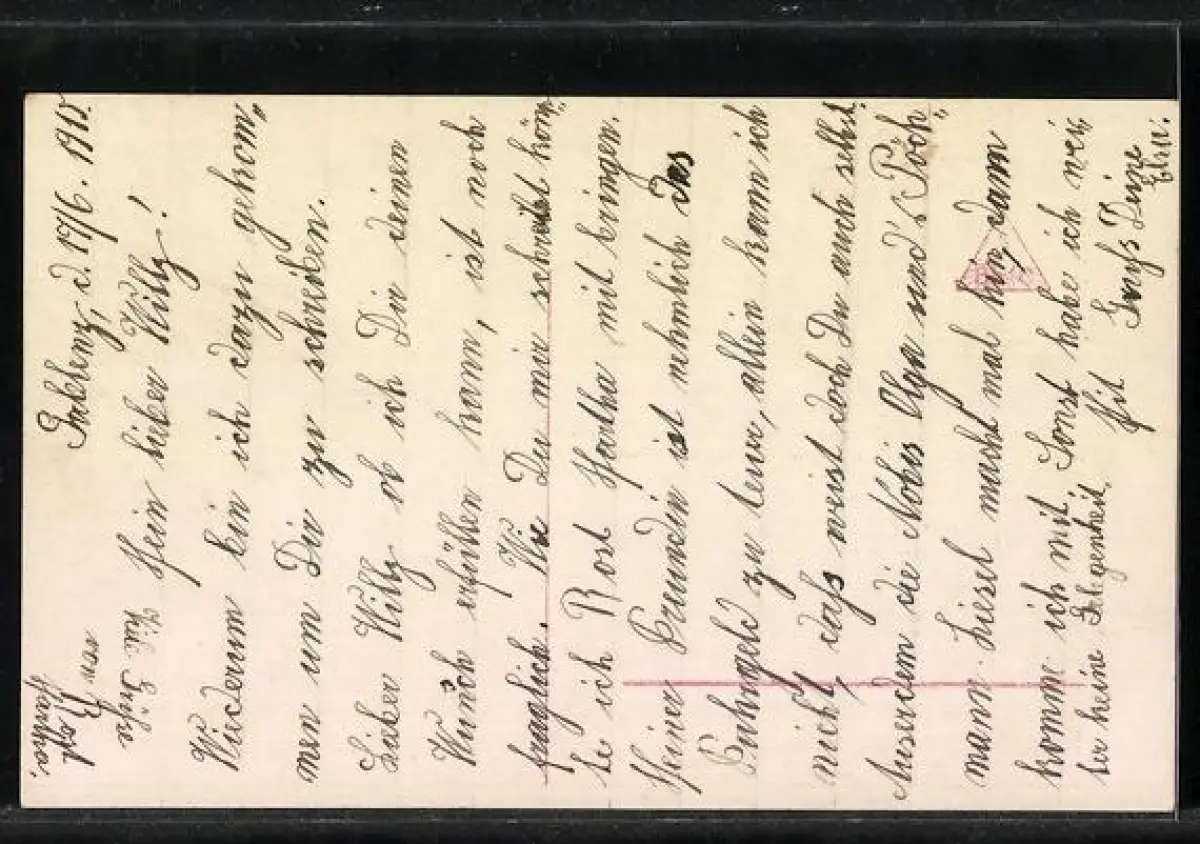 Gablenz, d. 17/6. 1915.
Mein lieber Willy!
Wiederum bin ich dazu gekom„
men um Dir zu schreiben.
Lieber Willy ob ich Dir deinen
Wunsch erfüllen kann, ist noch
fraglich. Wie Du mir schreibst kön„
te ich Rost Martha mit bringen.
Meiner Freundin ist nehmlich das
Bahngeld zu teuer, allein kann ich
nicht, daß weist doch Du auch selbst.
Auserdem die Nobis Olga und's Poch„
mann. Liesel macht mal hin, dann
komme ich mit. Sonst habe ich wei„
ter keine Gelegenheit. Mit Gruß Deine
Elsa.
Viele Grüße
von
Rost
Martha.